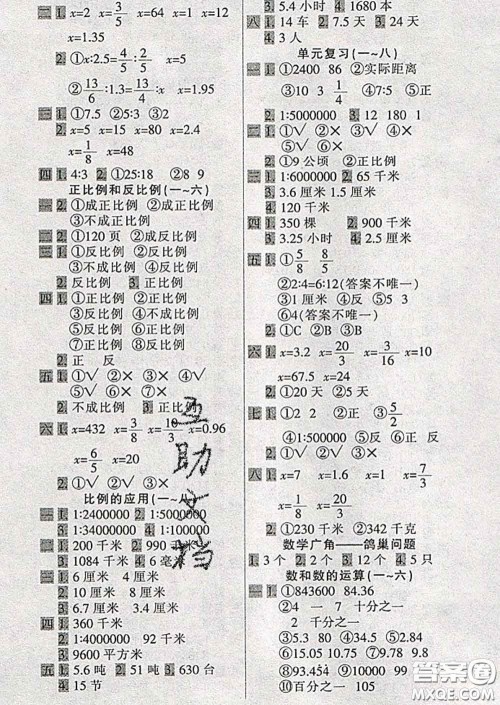 二 1. x=2 x=3/5 x=64 x=1 x=3
2. ①x:2.5=4/5:2/5 x=5
②13/6:1.3=13/4:x x=1.95
三 1. ①7.5 ②5:3 ③√
2. x=5 x=15 x=80 x=2.4
x=1/8 x=48
四 1. 4:3 2. ①25:18 ②8 9
正比例和反比例(一~六)
一 1. ①成正比例 ②成正比例
③不成正比例
二 1. ①120 页 ②成反比例
三 1. ①反比例 ②正比例
③不成比例 ④反比例
2. 反比例 3. 正比例
四 1. ①正比例 ②正比例
③反比例 ④正比例
⑤反比例 ⑥正比例
⑦正比例 ⑧反比例
2. 正 反
五 1. ①√ ②× ③× ④√
⑤√ ⑥× ⑦×
2. 不成比例 3. 正比例
六 1. x=432 x=3/8 x=10/3 x=0.96
x=6/5 x=20
2. ①√ ②× ③×
比例的应用(一~八)
一 1. 1:2400000 2. 1:5000000
3. 1:34000000 4. 1:100000
二 1. 200 千米 2. 990 千米
3. 1084 千米 4. 6 毫米
三 1. 6 厘米 4 厘米
2. 10 厘米 8 厘米
3. 6.7 厘米 4.4 厘米
四 1. 360 千米
2. 1:4000000 92 千米
3. 9600 平方米
五 1. 5.6 吨 2. 51 吨 3. 630 台
4. 15 节
3. 5.4 小时 4. 1680 本
八 1. 14 车 2. 7.5 天 3. 24 天
4. 3 人
单元复习(一~八)
一 1. ①2400 86 ②实际距离
③10 3 1/3 ④反 ⑤正
2. 1:5000000 3. 12 180 1
二 1. ①√ ②× ③× ④√
2. ①9 公顷 ②正比例
三 1. 36 千米 2. 60 千米
3. 3.6 厘米 1.5 厘米
4. 120 千米
四 1. 350 棵 2. 900 千米
3. 3.25 小时 4. 2.5 厘米
五 1. ①5/8 8/5
②2:4=6:12(答案不唯一)
③1 厘米 ④反 ⑤正
⑥4(答案不唯一)
2. ①C ②B ③B
六 1. x=3.2 x=20/3 x=3/16 x=10
x=67.5 x=24
2. ①20天 ②5天
七 1. ①2 2 ②正 ③5/2
④1:1000000 ⑤反 ⑥正
2. ①√ ②√ ③× ④√
八 1. x=7 x=1.6 x=1 x=7/3
x=1/8 x=20/3
2. ①230千米 ②342 千克
数学广角——鸽巢问题
1. 3 个 2. 2 个 3. 12 个 4. 5 只
数和数的运算(一~六)
一 1. ①843600 84.36
②4 一 7 十分之一
2 千分之一
③5.3 80 ④0.09
⑤15.78 ⑥69.99 ⑦0
⑧93.454 ⑨3.36
⑩百分之一 105
互助文档
答案圈
MXQE.COM